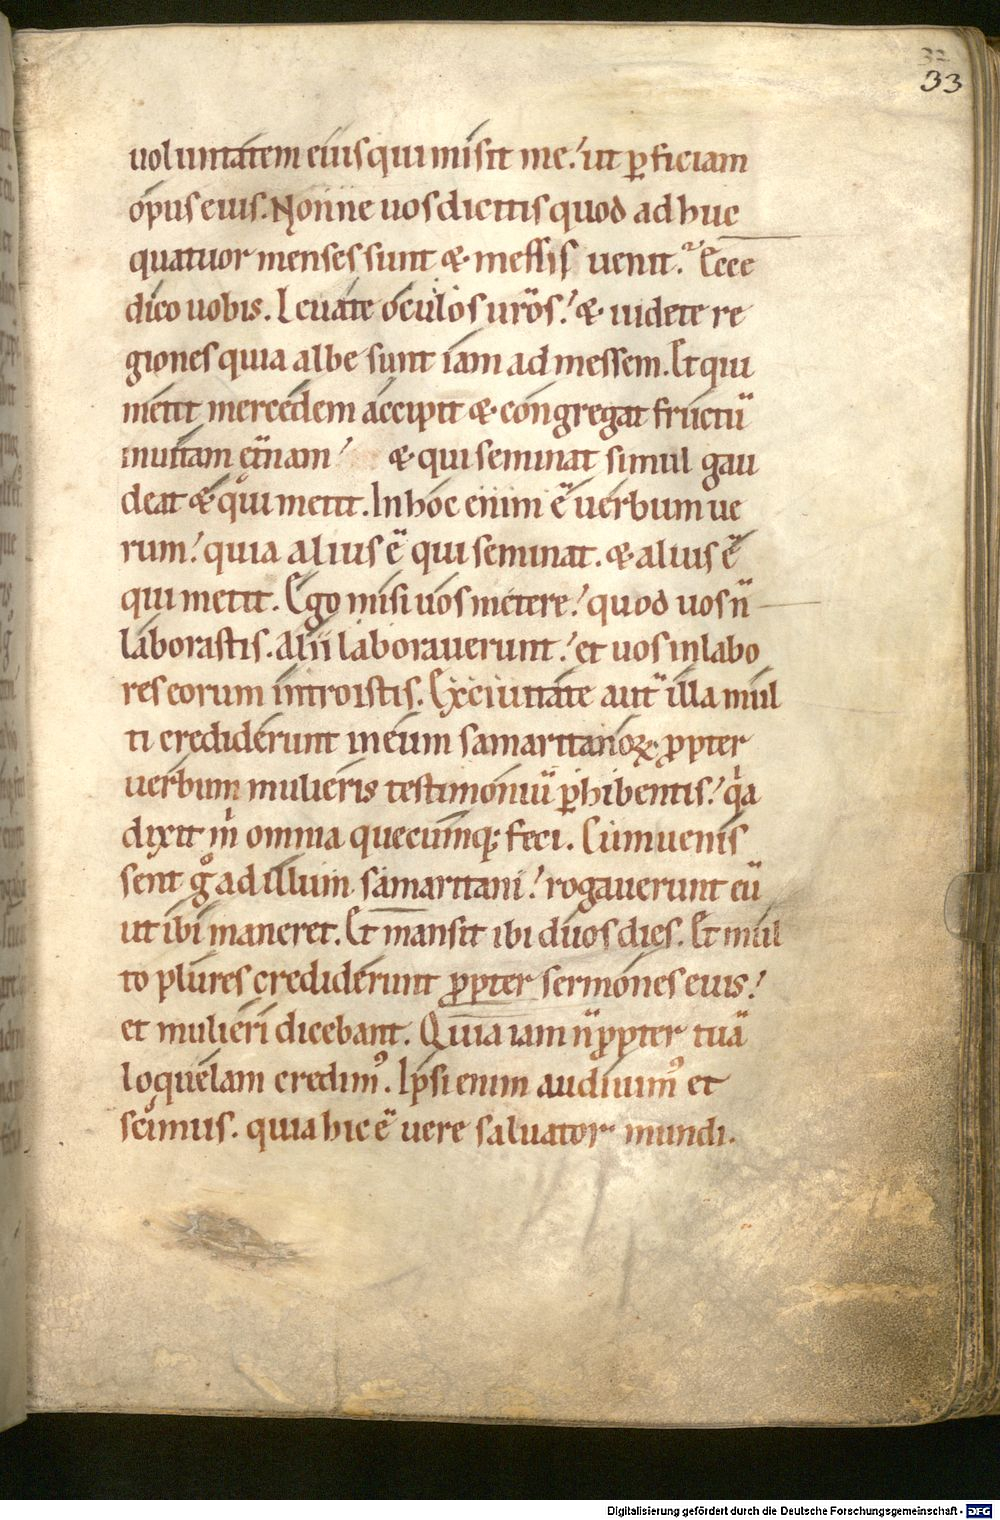 32
33
uoluntatem eius qui misit me. ut ꝑficiam
opus eius. Nonne uos dicitis quod adhuc
quatuor menses sunt & messis uenit. Ecce
dico uobis. Leuate oculos ur̄os. & uidete re
giones quia albe sunt iam ad messem. Et qui
metit mercedem accipit & congregat fructū
in uitam et̄nam & qui seminat simul gau
deat & qui metit. In hoc enim ē uerbum ue
rum. quia alius ē qui seminat. & alius ē
qui metit. Ego misi uos metere. quod uos n̄
laborastis. Alii laborauerunt. et uos in labo
res eorum introistis. Ex ciuitate aut̄ illa mul
ti crediderunt in eum samaritanoꝝ. ꝓpter
uerbum mulieris testimoniū ꝑhibentis. qͥa
dixit m̍ omnia quecumqꝫ feci. Cum uenis
sent gͦ ad illum samaritani. rogauerunt eū
ut ibi maneret. Et mansit ibi duos dies. Et mul
to plures crediderunt ꝓpter sermones eius.
et mulieri dicebant. Quia iam n̄ ꝓpter tuā
loquelam credimꝰ. Ipsi enim audiuimꝰ et
scimus. quia hic ē uere saluator mundi.
Digitalisierung gefördert durch die Deutsche Forschungsgemeinschaft - DFG